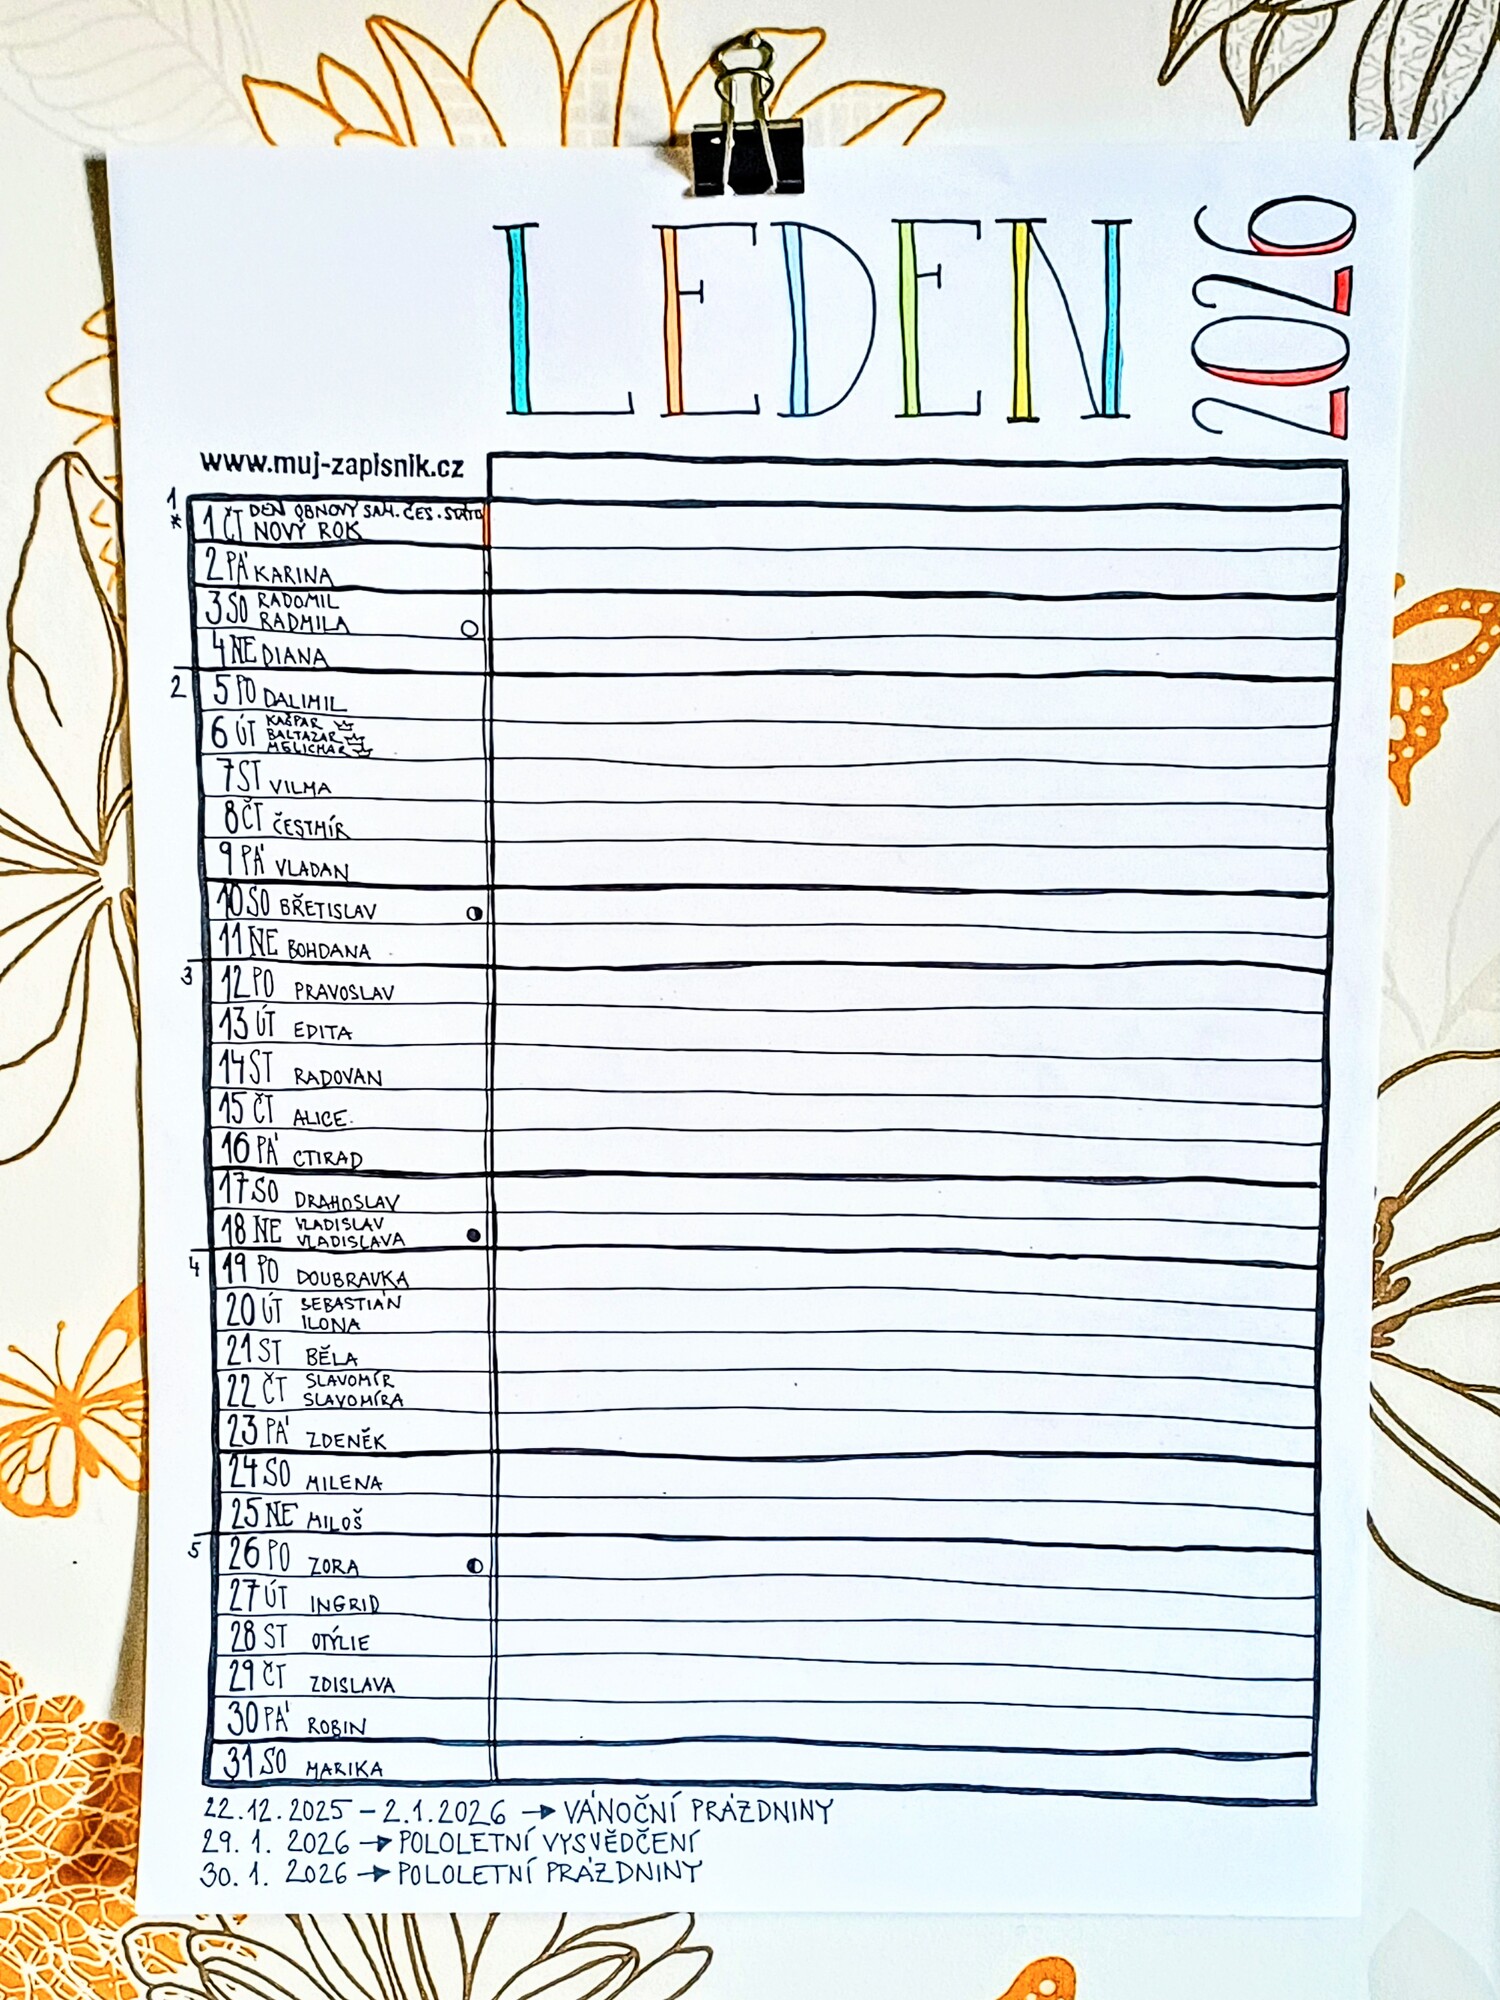 LEDEN 2026
www.muj-zapisnik.cz
1
* 1 ČT DEN OBNOVY SAM. ČES. STÁTU
NOVÝ ROK
2 PÁ KARINA
3 SO RADOMIL
RADMILA
4 NE DIANA
2 5 PO DALIMIL
6 ÚT KAŠPAR
BALTAZAR
MELICHAR
7 ST VILMA
8 ČT ČESTMÍR
9 PÁ VLADAN
10 SO BŘETISLAV
11 NE BOHDANA
3 12 PO PRAVOSLAV
13 ÚT EDITA
14 ST RADOVAN
15 ČT ALICE.
16 PÁ CTIRAD
17 SO DRAHOSLAV
18 NE VLADISLAV
VLADISLAVA
4 19 PO DOUBRAVKA
20 ÚT SEBASTIÁN
ILONA
21 ST BĚLA
22 ČT SLAVOMÍR
SLAVOMÍRA
23 PÁ ZDENĚK
24 SO MILENA
25 NE MILOŠ
5 26 PO ZORA
27 ÚT INGRID
28 ST OTÝLIE
29 ČT ZDISLAVA
30 PÁ ROBIN
31 SO MARIKA
22.12.2025 – 2.1.2026 → VÁNOČNÍ PRÁZDNINY
29. 1. 2026 → POLOLETNÍ VYSVĚDČENÍ
30. 1. 2026 → POLOLETNÍ PRÁZDNINY